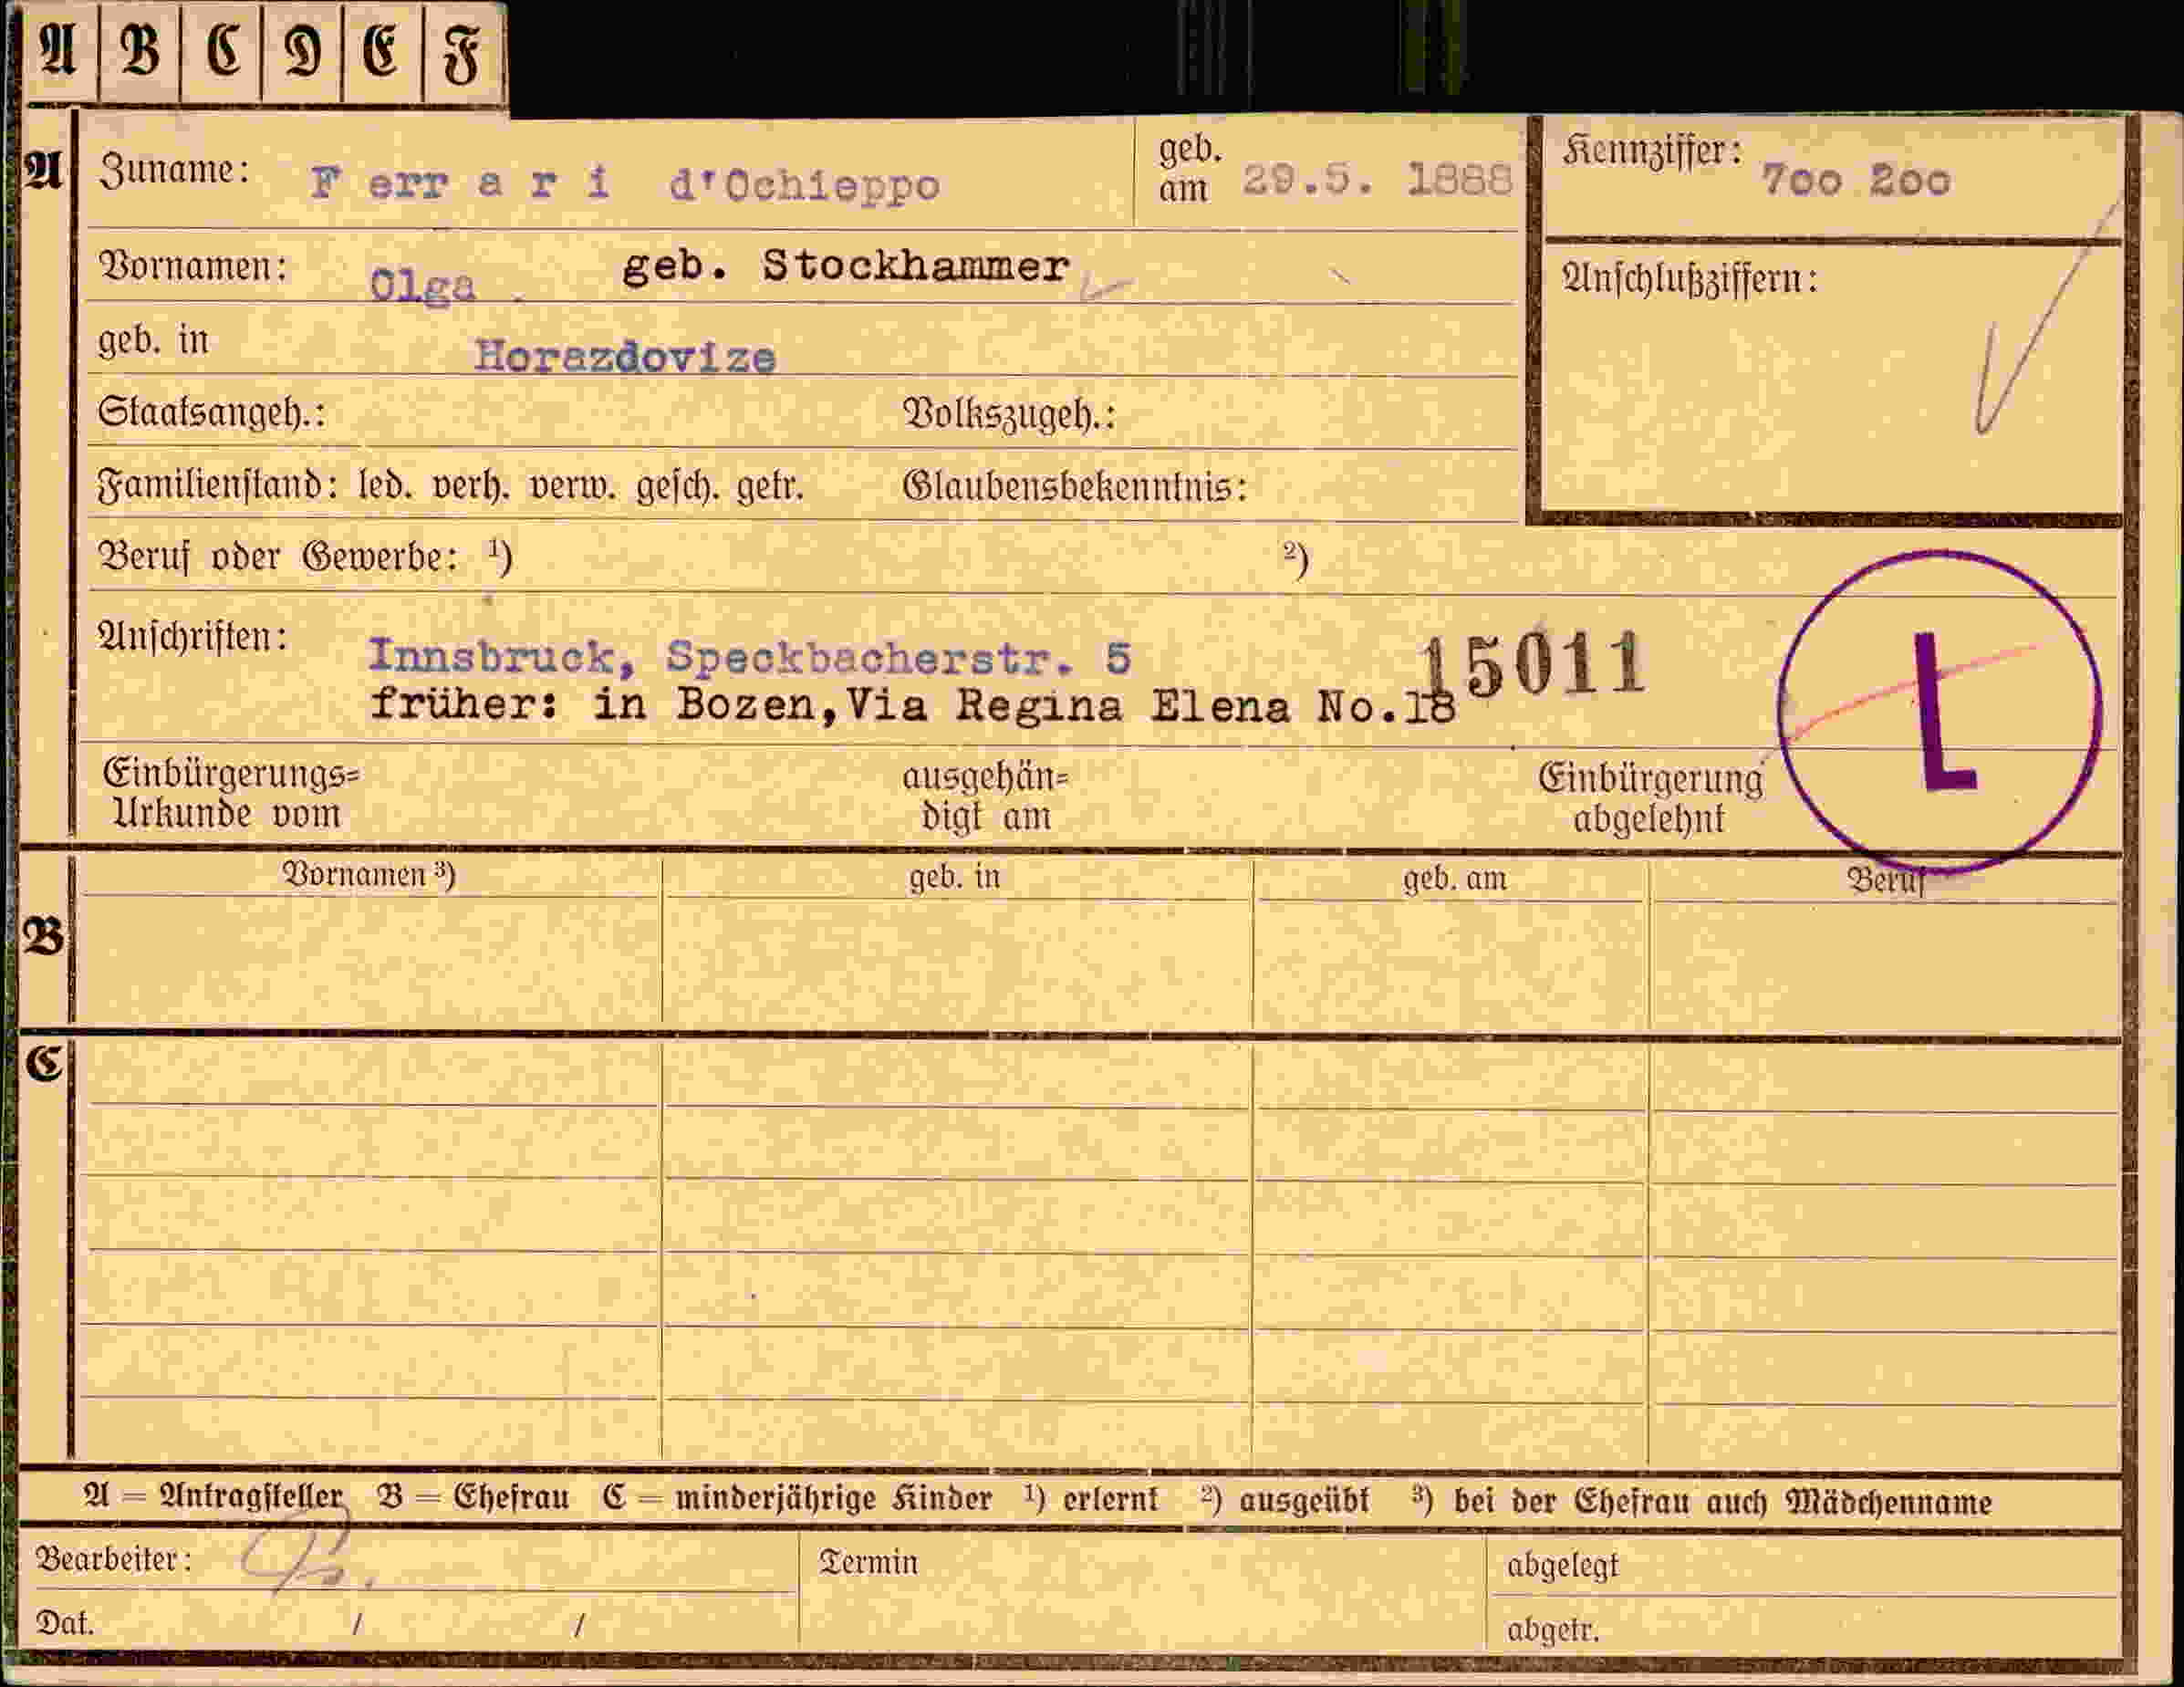 A B C D E F
A Zuname: F err a r i d'Ochieppo geb. am 29.5. 1888 Kennziffer: 700 200
Vornamen: Olga geb. Stockhammer Anschlußziffern:
geb. in Horazdovize
Staatsangeh.: Volkszugeh.:
Familienstand: led. verh. verw. gesch. getr. Glaubensbekenntnis:
Beruf oder Gewerbe: ¹) ²)
Anschriften: Innsbruck, Speckbacherstr. 5 15011
früher: in Bozen,Via Regina Elena No.18
L
Einbürgerungs= ausgehän= Einbürgerung
Urkunde vom digt am abgelehnt
Vornamen ³) geb. in geb. am Beruf
B
C
A = Antragsteller B = Ehefrau C = minderjährige Kinder ¹) erlernt ²) ausgeübt ³) bei der Ehefrau auch Mädchenname
Bearbeiter: Termin abgelegt
Dat. / / abgetr.